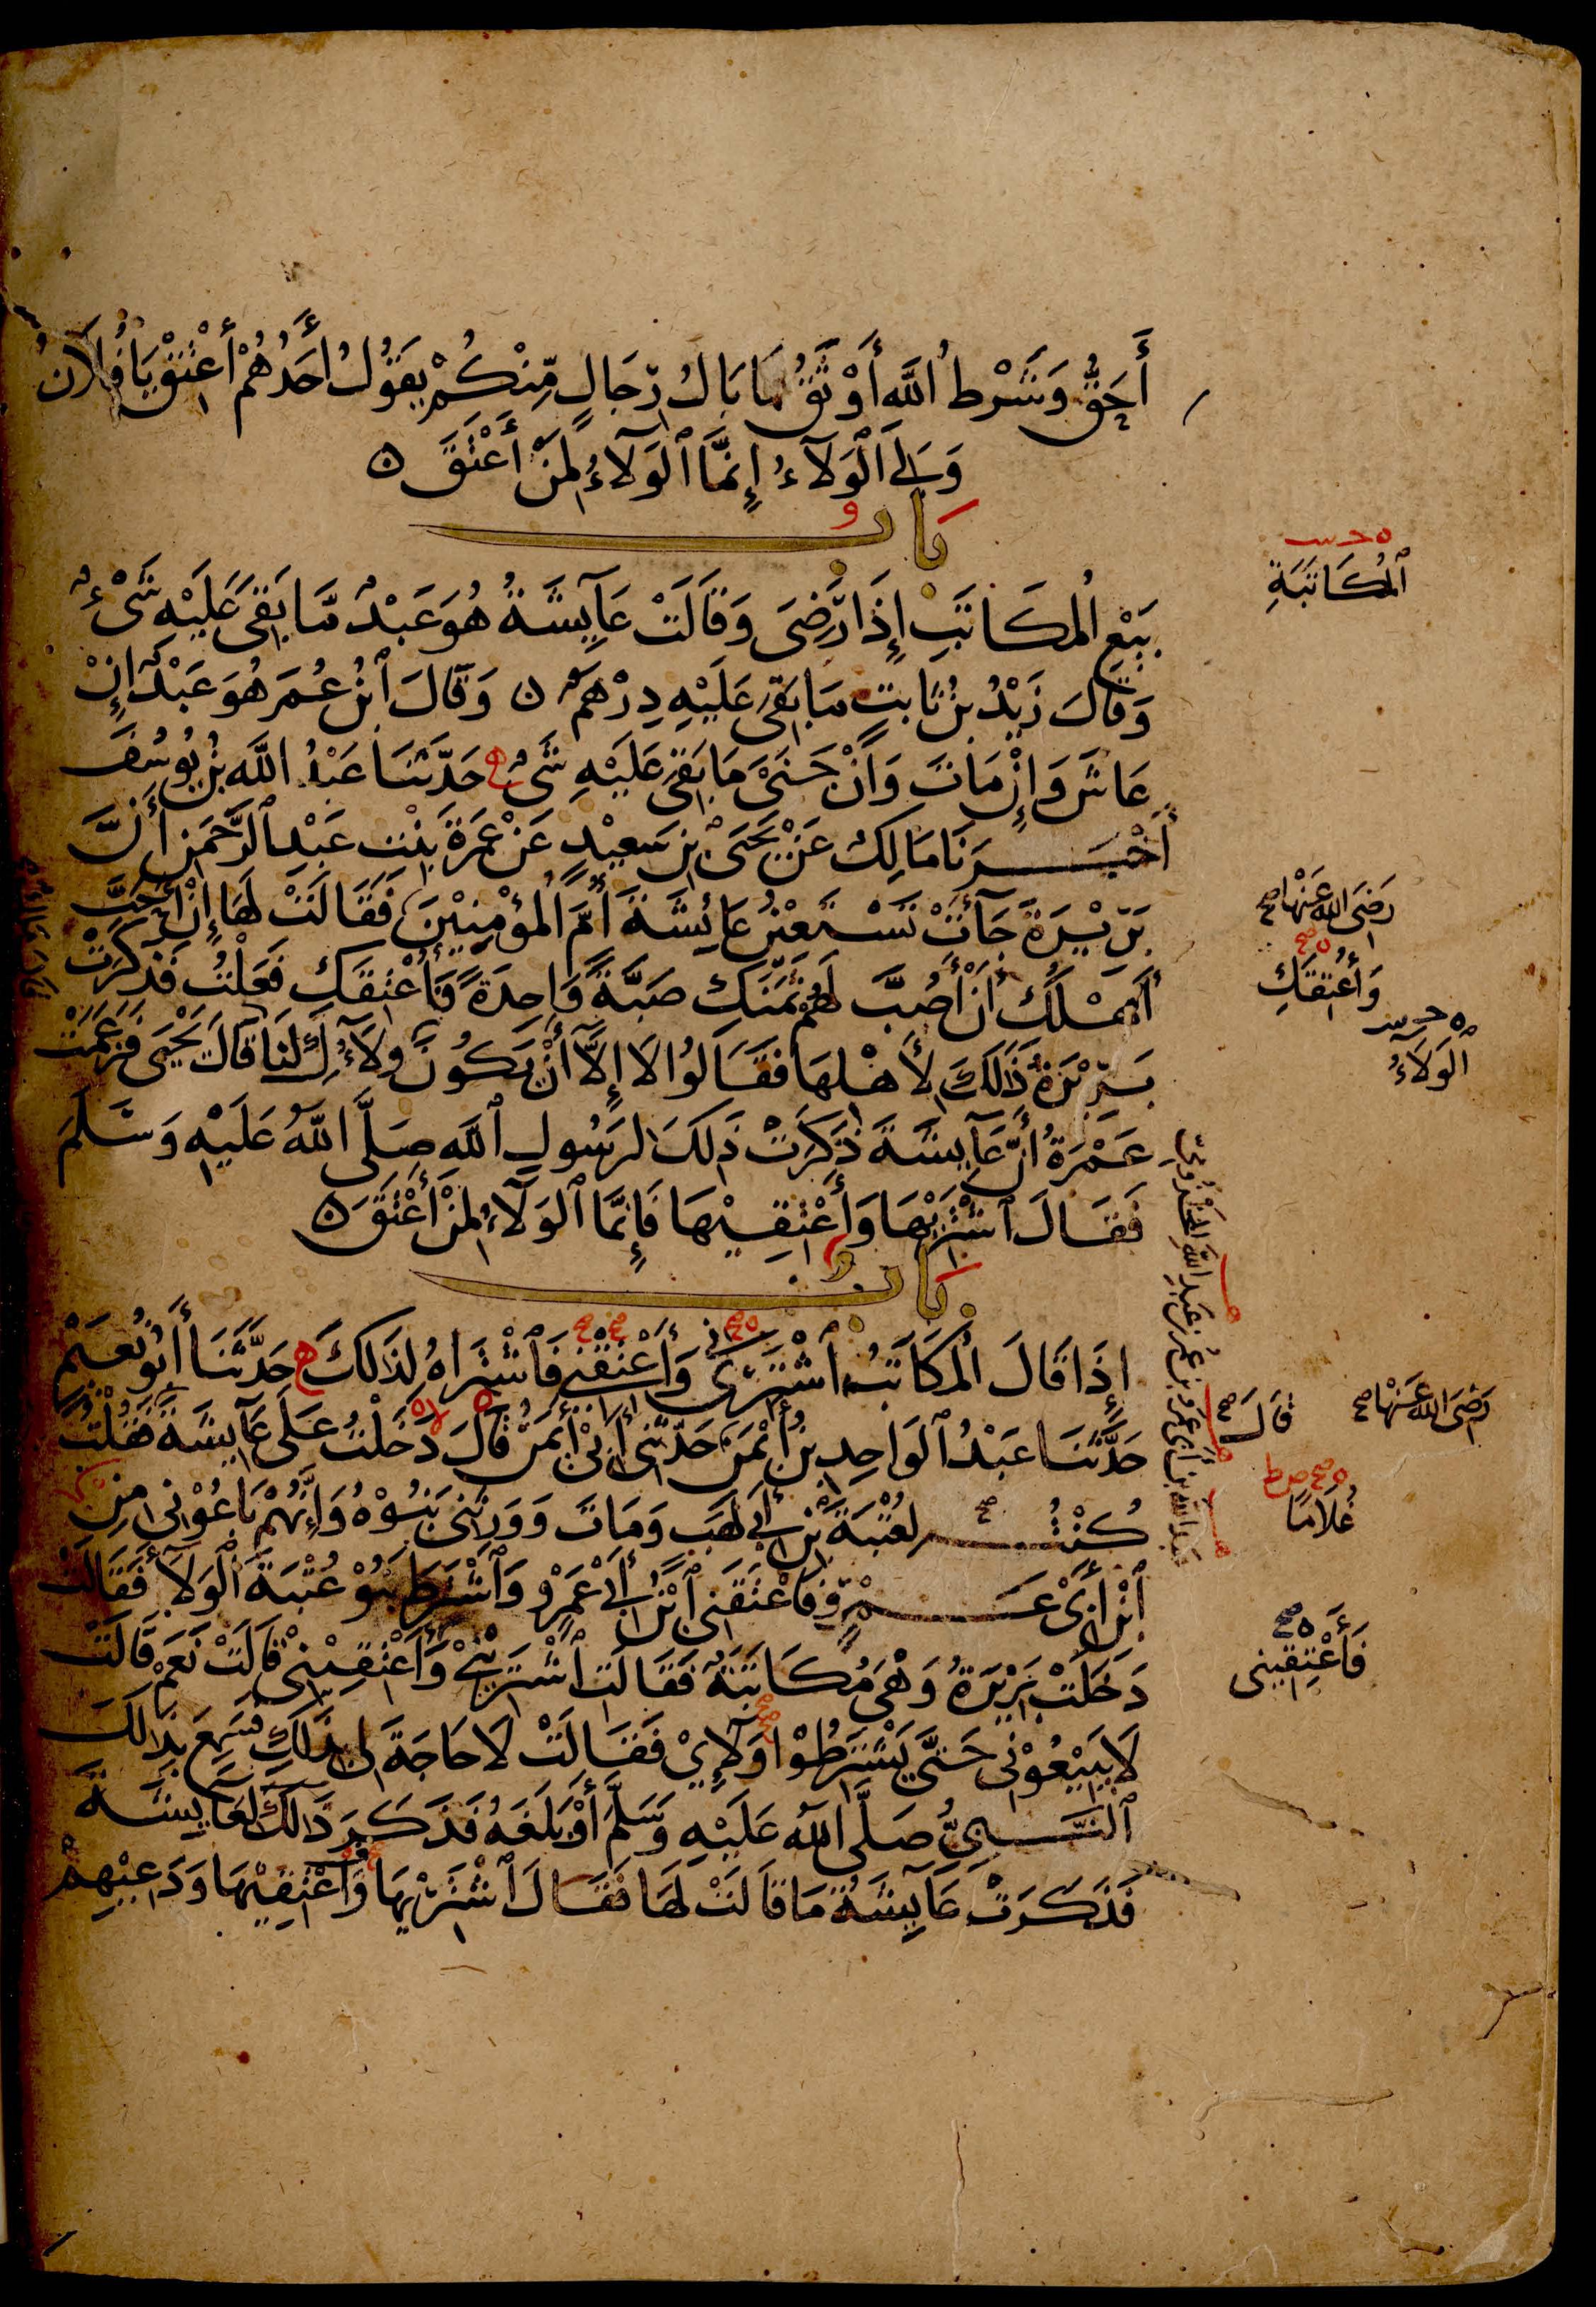 أَحَقُّ وَشَرْطُ اللَّهِ أَوْثَقُ مَا بَالُ رِجَالٍ مِّنْكُمْ يَقُولُ أَحَدُهُمْ أَعْتِقْ يَا فُلَانُ
وَلِيَ الْوَلَاءُ إِنَّمَا الْوَلَاءُ لِمَنْ أَعْتَقَ ن
بَابُ
بَيْعِ الْمُكَاتَبِ إِذَا رَضِيَ وَقَالَتْ عَآيِشَةُ هُوَ عَبْدٌ مَّا بَقِيَ عَلَيْهِ شَيْءٌ
الْمُكَاتَبَةِ
وَقَالَ زَيْدُ بْنُ ثَابِتٍ مَا بَقِيَ عَلَيْهِ دِرْهَمٌ ن وَقَالَ ابْنُ عُمَرَ هُوَ عَبْدٌ إِنْ
عَاشَ وَإِنْ مَاتَ وَإِنْ جَنَى مَا بَقِيَ عَلَيْهِ شَيْءٌ حَدَّثَنَا عَبْدُ اللَّهِ بْنُ يُوسُفَ
أَخْبَرَنَا مَالِكٌ عَنْ يَحْيَى بْنِ سَعِيْدٍ عَنْ عَمْرَةَ بِنْتِ عَبْدِ الرَّحْمَنِ أَنَّ
بَرِيْرَةَ جَآءَتْ تَسْتَعِيْنُ عَائِشَةَ أُمَّ الْمُؤْمِنِيْنَ فَقَالَتْ لَهَا إِنْ أَحَبَّ
رَضِيَ اللهُ عَنْهَا صح
أَهْلُكِ أَنْ أَصُبَّ لَهُمْ ثَمَنَكِ صَبَّةً وَاحِدَةً فَأُعْتِقَكِ فَعَلْتُ فَذَكَرَتْ
وَأُعْتِقَكِ
بَرِيْرَةُ ذَلِكَ لِأَهْلِهَا فَقَالُوا لَا إِلَّا أَنْ يَكُونَ وَلَآؤُكِ لَنَا قَالَ يَحْيَى فَزَعَمَتْ
الْوَلَاءُ
عَمْرَةُ أَنَّ عَآيِشَةَ ذَكَرَتْ ذَلِكَ لِرَسُولِ اللَّهِ صَلَّى اللَّهُ عَلَيْهِ وَسَلَّمَ
فَقَالَ اشْتَرِيْهَا وَأَعْتِقِيْهَا فَإِنَّمَا الْوَلَآءُ لِمَنْ أَعْتَقَ ن
بَابُ
إِذَا قَالَ الْمُكَاتَبُ اشْتَرِنِي وَأَعْتِقْنِي فَاشْتَرَاهُ لِذَلِكَ حَدَّثَنَا أَبُو نُعَيْمٍ
حَدَّثَنَا عَبْدُ الْوَاحِدِ بْنُ أَيْمَنَ حَدَّثَنِي أَبِيْ أَيْمَنُ قَالَ دَخَلْتُ عَلَى عَآيِشَةَ فَقُلْتُ
قَالَ صح
رَضِيَ اللهُ عَنْهَا صح
كُنْتُ لِعُتْبَةَ بْنِ أَبِي لَهَبٍ وَمَاتَ وَوَرِثَنِي بَنُوْهُ وَإِنَّهُمْ بَاعُوْنِي مِنِ
غُلَامًا
ابْنِ أَبِي عَمْرٍو فَأَعْتَقَنِي ابْنُ أَبِيْ عَمْرٍو وَاشْتَرَطَ بَنُوْ عُتْبَةَ الْوَلَآءَ فَقَالَتْ
دَخَلَتْ بَرِيْرَةُ وَهْيَ مُكَاتَبَةٌ فَقَالَتِ اشْتَرِيْنِيْ وَأَعْتِقِيْنِيْ قَالَتْ نَعَمْ قَالَتْ
فَأَعْتِقِيْنِي
لَا يَبِيْعُوْنِي حَتَّى يَشْتَرِطُوْا وَلَآئِيْ فَقَالَتْ لَا حَاجَةَ لِي بِذَلِكَ فَسَمِعَ بِذَلِكَ
النَّبِيُّ صَلَّى اللَّهُ عَلَيْهِ وَسَلَّمَ أَوْ بَلَغَهُ فَذَكَرَ ذَلِكَ لِعَآيِشَةَ
فَذَكَرَتْ عَآيِشَةُ مَا قَالَتْ لَهَا فَقَالَ اشْتَرِيْهَا وَأَعْتِقِيْهَا وَدَعِيْهِمْ